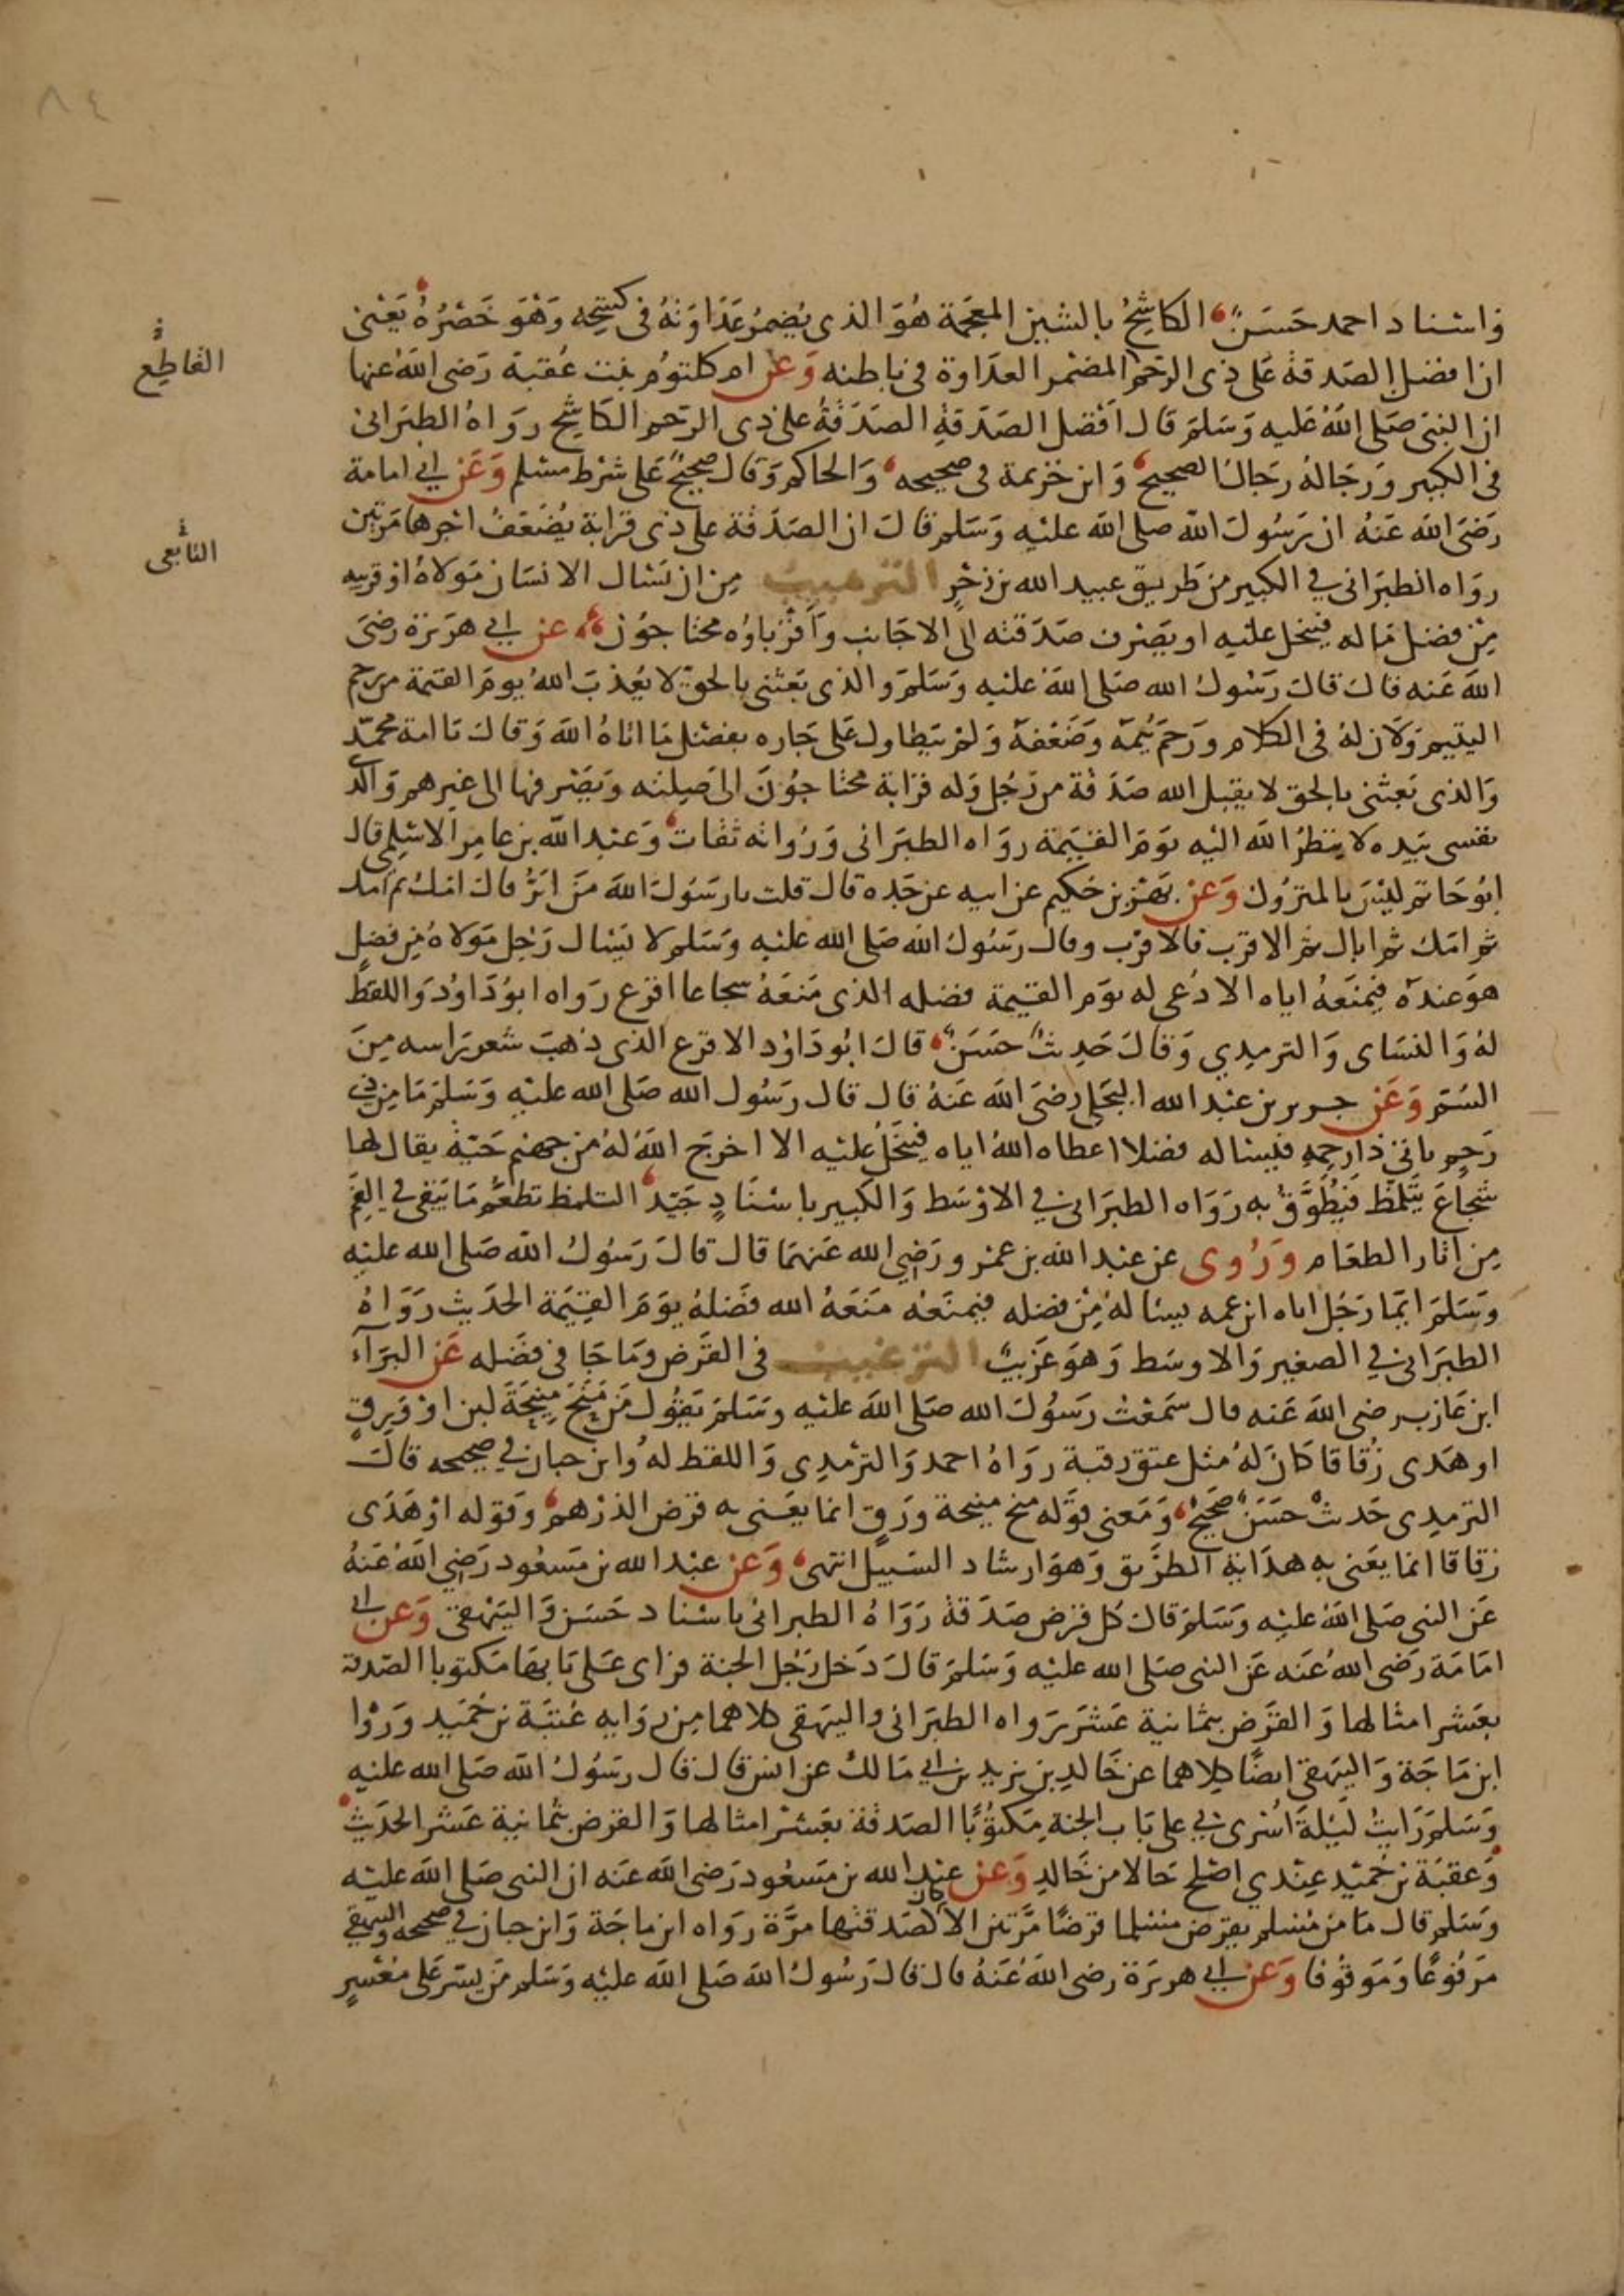 ٨٤
واسناد احمد حَسَنٌ الكاشِحُ بالشين المعجَمة هُوَ الذى يُضمرُ عَدَاوَتَهُ فى كشحِه وَهْوَ خَصْرُهُ يَعْنى
ان افضل الصَدقة عَلى ذِى الرَحم المضمر العدَاوة فى باطنه وَعن ام كلثوُم بنت عُقبة رَضى الله عنها
ان النبى صَلى اللهُ عَليه وَسَلم قال اَفْضل الصَدَقَةِ الصَدَقَةُ على ذِى الرَحم الكَاشِح روَاهُ الطبَرَانى
فى الكبير وَرجَالهُ رجَال الصحيح وَابن خزيمة فى صحيحه وَالحاكم وَقال صحيحٌ عَلى شرْط مسْلم وَعَن ابي امامة
رَضىَ الله عَنهُ ان رَسُولَ اللّه صلى الله عليْه وَسَلم قالَ ان الصَدَقة على ذى قرَابة يُضَعَفُ اجْرها مَرتين
روَاه الطبَرَانى في الكبير من طَريق عبيد الله بن زحْرٍ الترهيب مِن ان يَسْال الانسَان مَولاهُ اوْ قريبه
مِن فضل مَا له فيبخل عليْه او يَصْرف صَدَقته الى الاجَانب وَاَقْرباؤه محتَاجُوْن عن ابي هرَيرَة رضىَ
اللهَ عَنه قالَ قالَ رَسُولُ الله صَلى اللهَ عليْه وَسَلمَ والذى بَعثنى بالحق لا يُعذبَ اللهُ يومَ القيٰمة من رحم
اليَتيم وَلان لهُ فى الكلام وَرَحمَ يُتمهُ وَضَعْفهُ وَلمْ يتطاول عَلى جَاره بفضْل مَا اتاهُ الله وَقالَ يَا امة محمّد
وَالذى بَعثنى بالحق لا يقبل الله صَدَقة من رَجُل وَله قرَابة محتَاجوُنَ الىَ صِلته وَيَصْرفها الى غيرهم وَالذى
نفسى بيَده لا ينظرُ اللهَ اليْه يوَمَ القيٰمة روَاه الطبَرَانى وَرُوَاته ثقات وَعَبْد اللّه بن عامِر الاسْلمى قال
ابوُ حَاتم ليْسَ بالمتروُك وَعَن بَهْز بن حَكيم عن ابيه عن جَده قال قلت يا رَسُولَ اللهَ مَن ابَرُّ قال امّك ثم امّك
ثم امّك ثم ابَاك ثم الاقرَب فالاقرَب وقال رَسُولُ الله صَلى الله عليْه وَسَلم لا يَسْال رَجُل مَولاهُ مِن فضلٍ
هوَ عندَهُ فيَمنَعهُ اياه الا دُعى له يوَم القيٰمة فضله الذى مَنعَهُ شجاعا اقرَع روَاه ابوُ دَاوُد وَاللفظُ
لهُ وَالنسَاى وَالترمذِي وَقالَ حَدِيثٌ حَسَنٌ قالَ ابُو دَاوُد الاقرع الذى ذهبَ شعر رَاسه مِنَ
السُم وَعَن جرير بن عبْد الله البَجَلى رضىَ الله عَنهُ قال قال رَسُول الله صَلى الله عليْه وَسَلم مَا مِن ذي
رَحمٍ ياتى ذا رَحِمِهِ فيسْاله فضلا اعطاه اللهُ اياه فيَبخَلُ عليْه الا اخرَج اللهُ لهُ من جهنم حَيّة يقال لها
شُجَاعَ يتَلمَّظ فيُطَوَّقُ به رَوَاه الطبَرَانى في الاوْسَط وَالكَبير باسْنَادٍ جَيّد التلمظ تطعُّم مَا يَبقى في الفَمِ
مِن آثار الطعَام وَرُوى عن عبْد الله بن عمْرو رَضِي الله عَنهمَا قال قالَ رَسُولُ الله صَلى الله عليْه
وَسَلمَ ايّمَا رَجُل اتاه ابن عمه يسْالهُ مِن فضله فيمنعَهُ مَنَعَهُ الله فضلهُ يوَمَ القيٰمَة الحَدَيث رَوَاهُ
الطبَرَانى في الصغير وَالاوسَط وَهوَ غَرَيبٌ الترغيب فى القَرض ومَا جَا فى فضَله عَن البرَآء
ابن عَازب رضى الله عَنه قال سَمعْتُ رَسُولَ الله صَلى اللهَ عليْه وَسَلمَ يَقوُل مَن مَنَحَ مَنِيحَةَ لبن اوْ وَرِقٍ
او هَدى زُقاقا كَانَ لهُ مثل عتق رقبة روَاهُ احمد وَالترْمذِى وَاللفظ لهُ وابن حبان في صحيحه قالَ
الترمذِى حَديثٌ حَسَنٌ صَحيْح وَمَعنى قوَله منح منيحة وَرَقٍ انما يعَنى به قرض الدرْهم وَقوله اوْ هَدَى
زقاقا انما يعَنى به هدَاية الطرَيق وَهوَ ارشاد السَبيل انتهى وَعَن عبْد الله بن مَسعُود رَضِي اللهُ عَنهُ
عَن النبى صَلى اللهُ عليْه وَسَلمَ قالَ كل قرض صَدَقة رَوَاهُ الطبرَانى باسْناد حَسَن وَالبَيْهقى وَعَن ابي
امَامَة رَضى اللهُ عَنه عَن النبى صَلى الله عليْه وَسَلمَ قالَ دَخل رَجُل الجنة فرَاى عَلى بَابهَا مَكتوبا الصَدقة
بعَشر امثالها وَالقَرض بثمَانية عَشرَ روَاه الطبَرَانى والبيهَقى كلاهما مِن روَايه عُتبَة بن حُمَيد وَرَوَا
ابن مَاجَة وَالبيَهقى ايضًا كلاهما عن خَالدِ بن يَزيد بن ابي مَالك عن انس قالَ قال رَسُولُ الله صَلى الله عليْه
وَسَلم رَايتُ ليْلةَ اسْرى بي على بَاب الجنة مَكتوُبًا الصَدقة بعَشْر امثالها وَالقرض بثمانية عَشر الحَدَيث
وَعقبَة بن حُميْد عِنْدي اصْلح حَالا من خَالدٍ وَعن عبْد الله بن مَسعُود رَضى الله عَنه ان النبى صَلى اللهَ عليْه
وَسَلم قال مَا من مُسْلم يقرض مسْلما قرضًا مَّرتين الا كان كصَدقتها مرَّة روَاه ابن ماجَة وَابن حبان في صحيحه والبيهقي
مَرفوُعًا وَمَوقوُفا وَعَن ابي هريَرَة رضى اللهَ عَنهُ قال قالَ رَسُولُ اللهَ صَلى اللهَ عليْه وَسَلم مَن يسّر عَلى مُعْسِرٍ
القَاطِع